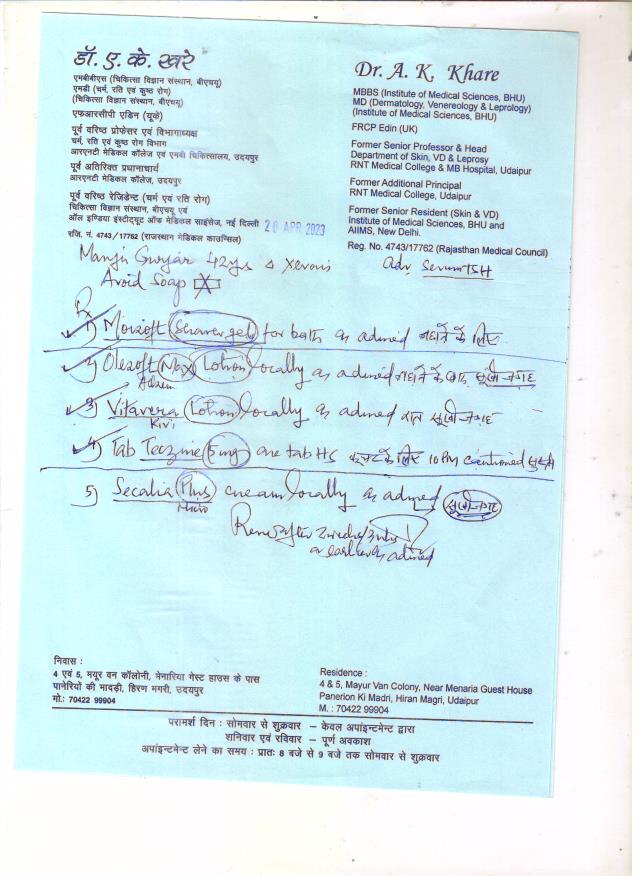 डॉ. ए. के. खरे
एमबीबीएस (चिकित्सा विज्ञान संस्थान, बीएचयू)
एमडी (चर्म, रति एवं कुष्ठ रोग)
(चिकित्सा विज्ञान संस्थान, बीएचयू)
एफआरसीपी एडिन (यूके)
पूर्व वरिष्ठ प्रोफेसर एवं विभागाध्यक्ष
चर्म, रति एवं कुष्ठ रोग विभाग
आरएनटी मेडिकल कॉलेज एवं एमबी चिकित्सालय, उदयपुर
पूर्व अतिरिक्त प्रधानाचार्य
आरएनटी मेडिकल कॉलेज, उदयपुर
पूर्व वरिष्ठ रेजिडेन्ट (चर्म एवं रति रोग)
चिकित्सा विज्ञान संस्थान, बीएचयू एवं
ऑल इण्डिया इंस्टीट्यूट ऑफ मेडिकल साइंसेज, नई दिल्ली
रजि. नं. 4743/17762 (राजस्थान मेडिकल काउन्सिल)
Dr. A. K. Khare
MBBS (Institute of Medical Sciences, BHU)
MD (Dermatology, Venereology & Leprology)
(Institute of Medical Sciences, BHU)
FRCP Edin (UK)
Former Senior Professor & Head
Department of Skin, VD & Leprosy
RNT Medical College & MB Hospital, Udaipur
Former Additional Principal
RNT Medical College, Udaipur
Former Senior Resident (Skin & VD)
Institute of Medical Sciences, BHU and
AIIMS, New Delhi.
Reg. No. 4743/17762 (Rajasthan Medical Council)
20 APR 2023
42ys Xerosis
Adv. Serum TSH
Avoid Soap
Rx
1) Moisoft (Shower gel) for bath as advised नहाने के लिए
2) Olesoft (Max) Lotion locally as advised नहाने के बाद सूखी जगह
3) Vitavera Lotion locally as advised रात सूखी जगह
Kivi
4) Tab Teczine 5mg one tab HS के लिए 10 PM cautioned
5) Secalia (Plus) cream locally as advised सूखी जगह
Micro
after
or earlier as advised
निवास :
4 एवं 5, मयूर वन कॉलोनी, मेनारिया गेस्ट हाउस के पास
पानेरियों की मादड़ी, हिरण मगरी, उदयपुर
मो.: 70422 99904
Residence :
4 & 5, Mayur Van Colony, Near Menaria Guest House
Panerion Ki Madri, Hiran Magri, Udaipur
M. : 70422 99904
परामर्श दिन : सोमवार से शुक्रवार – केवल अपांइन्टमेन्ट द्वारा
शनिवार एवं रविवार – पूर्ण अवकाश
अपांइन्टमेन्ट लेने का समय : प्रातः 8 बजे से 9 बजे तक सोमवार से शुक्रवार